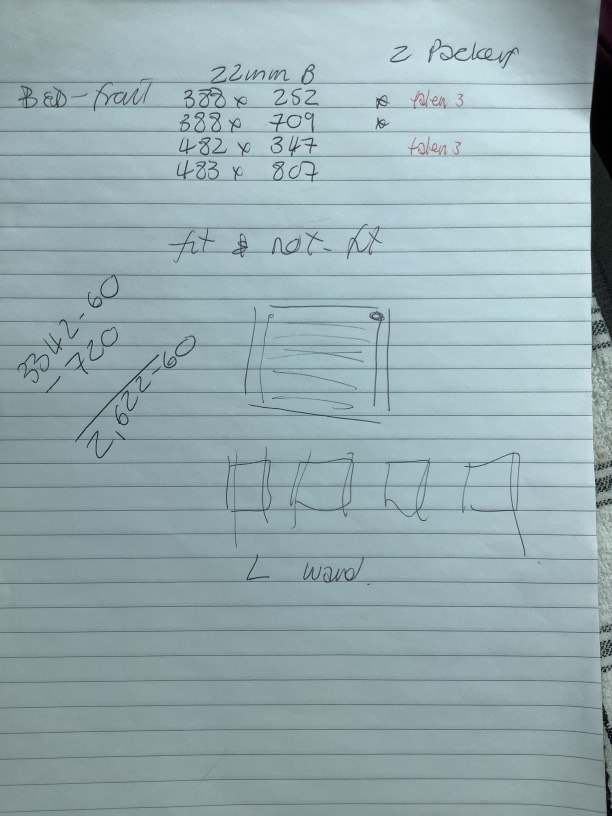 2 Packers
22mm B
BED-front 388 x 252 * taken 3
388 x 709 *
482 x 347 taken 3
483 x 807
fit & not-fit
3342-60
- 720
2,622-60
L Ward.